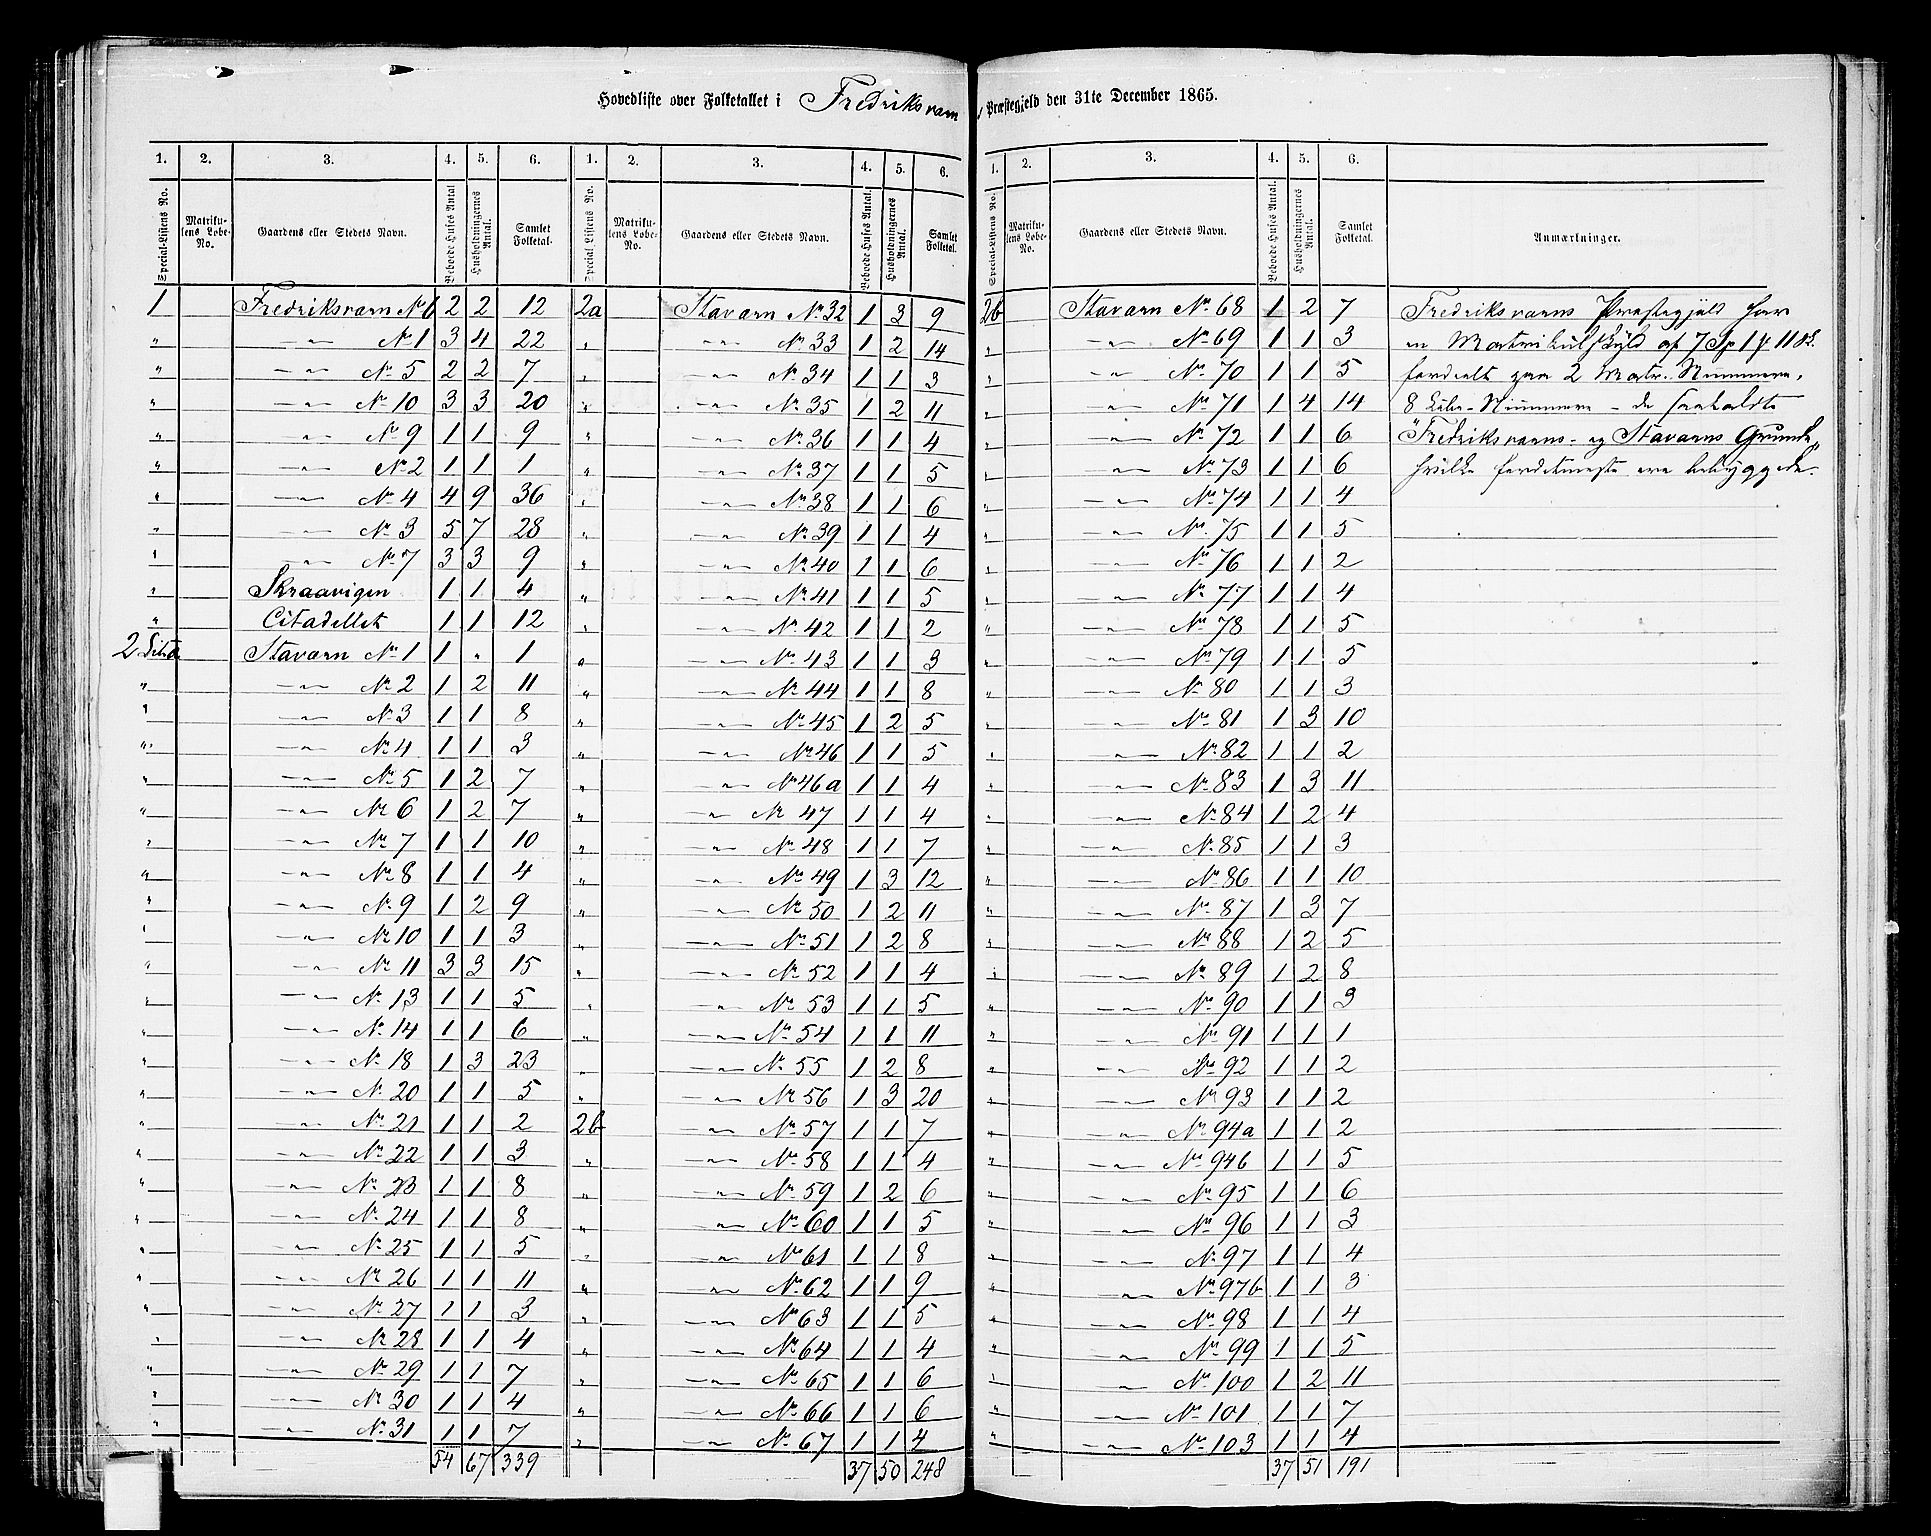 Hovedliste over Folketallet i Fredriksvarn Præstegjeld den 31te December 1865.
1. 2. 3. 4. 5. 6.
Special-Listens No. Matrikulens Løbe-No. Gaardens eller Stedets Navn. Beboede Huses Antal Husholdningernes Antal. Samlet Folketal.
1 Fredriksvarn No 6 2 2 12
" —"— No 1 3 4 22
" —"— No 5 2 2 7
" —"— No 10 3 3 20
" —"— No 9 1 1 9
" —"— No 2 1 1 1
" —"— No 4 4 9 36
" —"— No 3 5 7 28
" —"— No 7 3 3 9
" Skraavigen 1 1 4
" Citadellet 1 1 12
2 Lit a Stavarn No 1 1 " 1
" —"— No 2 1 2 11
" —"— No 3 1 1 8
" —"— No 4 1 1 3
" —"— No 5 1 2 7
" —"— No 6 1 2 7
" —"— No 7 1 1 10
" —"— No 8 1 1 4
" —"— No 9 1 2 9
" —"— No 10 1 1 3
" —"— No 11 3 3 15
" —"— No 13 1 1 5
" —"— No 14 1 1 6
" —"— No 18 1 3 23
" —"— No 20 1 1 5
" —"— No 21 1 1 2
" —"— No 22 1 1 3
" —"— No 23 1 1 8
" —"— No 24 1 1 8
" —"— No 25 1 1 5
" —"— No 26 1 1 11
" —"— No 27 1 1 3
" —"— No 28 1 1 4
" —"— No 29 1 1 7
" —"— No 30 1 1 4
" —"— No 31 1 1 7
54 67 339
1. 2. 3. 4. 5. 6.
Special-Listens No. Matrikulens Løbe-No. Gaardens eller Stedets Navn. Beboede Huses Antal. Husholdningernes Antal. Samlet Folketal.
2a Stavarn No 32 1 3 9
" —"— No 33 1 2 14
" —"— No 34 1 1 3
" —"— No 35 1 2 11
" —"— No 36 1 1 4
" —"— No 37 1 1 5
" —"— No 38 1 1 6
" —"— No 39 1 1 4
" —"— No 40 1 1 6
" —"— No 41 1 1 5
" —"— No 42 1 1 2
" —"— No 43 1 1 3
" —"— No 44 1 1 8
" —"— No 45 1 2 5
" —"— No 46 1 1 5
" —"— No 46a 1 1 4
" —"— No 47 1 1 4
" —"— No 48 1 1 7
" —"— No 49 1 3 12
" —"— No 50 1 2 11
" —"— No 51 1 2 8
" —"— No 52 1 1 4
" —"— No 53 1 1 5
" —"— No 54 1 1 11
" —"— No 55 1 2 8
" —"— No 56 1 3 20
2b —"— No 57 1 1 7
" —"— No 58 1 1 4
" —"— No 59 1 2 6
" —"— No 60 1 1 5
" —"— No 61 1 1 8
" —"— No 62 1 1 9
" —"— No 63 1 1 5
" —"— No 64 1 1 4
" —"— No 65 1 1 6
" —"— No 66 1 1 6
" —"— No 67 1 1 4
37 50 248
1. 2. 3. 4. 5. 6.
Special-Listens No. Matrikulens Løbe-No. Gaardens eller Stedets Navn. Beboede Huses Antal. Husholdningernes Antal. Samlet Folketal. Anmærkninger.
2b Stavarn No 68 1 2 7
" —"— No 69 1 1 3
" —"— No 70 1 1 5
" —"— No 71 1 4 14
" —"— No 72 1 1 6
" —"— No 73 1 1 6
" —"— No 74 1 1 4
" —"— No 75 1 1 5
" —"— No 76 1 1 2
" —"— No 77 1 1 4
" —"— No 78 1 1 5
" —"— No 79 1 1 5
" —"— No 80 1 1 3
" —"— No 81 1 3 10
" —"— No 82 1 1 2
" —"— No 83 1 3 11
" —"— No 84 1 2 4
" —"— No 85 1 1 3
" —"— No 86 1 1 10
" —"— No 87 1 3 7
" —"— No 88 1 2 5
" —"— No 89 1 2 8
" —"— No 90 1 1 3
" —"— No 91 1 1 1
" —"— No 92 1 1 2
" —"— No 93 1 1 2
" —"— No 94a 1 1 2
" —"— No 94b 1 1 5
" —"— No 95 1 1 6
" —"— No 96 1 1 3
" —"— No 97 1 1 4
" —"— No 97b 1 1 3
" —"— No 98 1 1 4
" —"— No 99 1 1 5
" —"— No 100 1 2 11
" —"— No 101 1 1 7
" —"— No 103 1 1 4
37 51 191
Fredriksvarns Præstegjeld har
en Matrikulskyld af 7 Sp 1 # 11 sk.
fordeelt paa 2 Matr. Nummere,
8 Løbe-Nummere - de saakaldte
"Fredriksvarns- og Stavarns Grunde",
hvilke fordetmeste ere bebyggede.